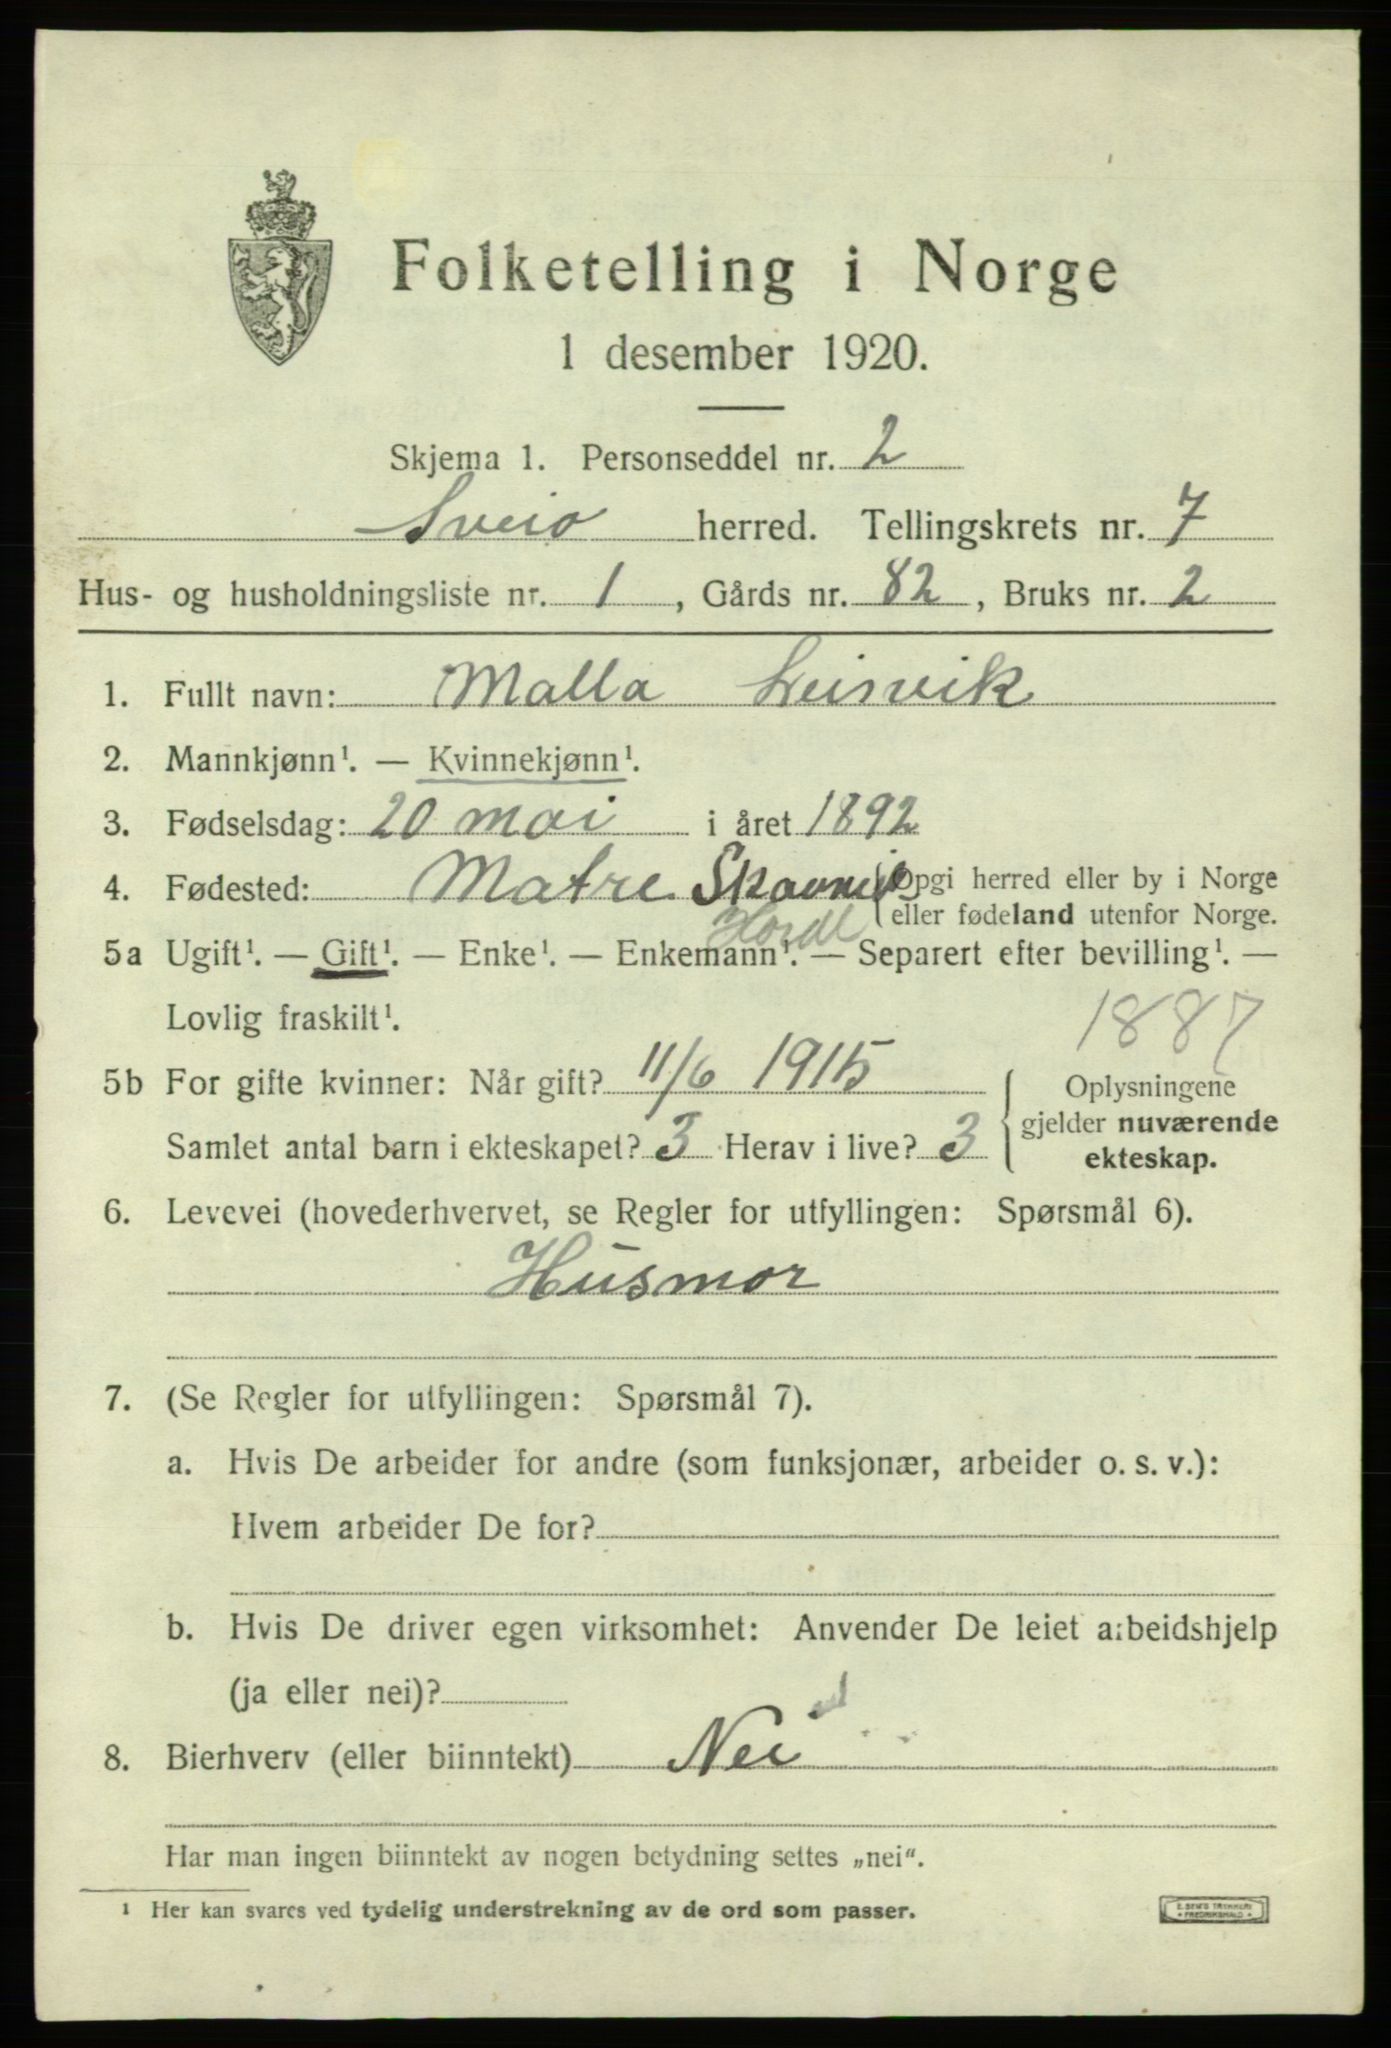 Folketelling i Norge
1 desember 1920.
Skjema 1. Personseddel nr. 2
Sveio herred. Tellingskrets nr. 7
Hus- og husholdningsliste nr. 1, Gårds nr. 82, Bruks nr. 2
1. Fullt navn: Malla Leirvik
2. Mannkjønn¹. — Kvinnekjønn¹.
3. Fødselsdag: 20 mai i året 1892
4. Fødested: Matre (Opgi herred eller by i Norge
eller fødeland utenfor Norge.
Hordl
5a Ugift¹. — Gift¹. — Enke¹. — Enkemann¹. — Separert efter bevilling¹. —
Lovlig fraskilt¹.
1887
5b For gifte kvinner: Når gift? 11/6 1915
Samlet antal barn i ekteskapet? 3 Herav i live? 3
Oplysningene
gjelder nuværende
ekteskap.
6. Levevei (hovederhvervet, se Regler for utfyllingen: Spørsmål 6).
Husmor
7. (Se Regler for utfyllingen: Spørsmål 7).
a. Hvis De arbeider for andre (som funksjonær, arbeider o. s. v.):
Hvem arbeider De for?
b. Hvis De driver egen virksomhet: Anvender De leiet arbeidshjelp
(ja eller nei)?
8. Bierhverv (eller biinntekt) Nei
Har man ingen biinntekt av nogen betydning settes „nei“.
¹ Her kan svares ved tydelig understrekning av de ord som passer.
E. SEM'S TRYKKERI
FREDRIKSHALD